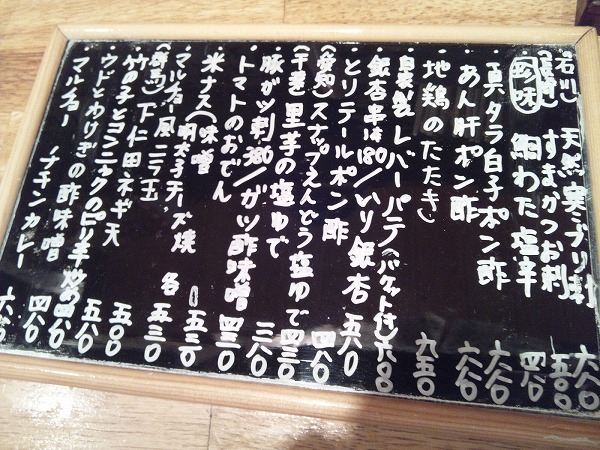 (石川) 天然寒ブリ刺 六八〇
(長崎) すまがつお刺 五八〇
珍味 鯛わた塩辛 四八〇
真タラ白子ポン酢 六八〇
あん肝ポン酢 六八〇
地鶏のたたき 九五〇
自家製レバーパテ(バケット付) 六八〇
銀杏串は180/いり銀杏 五八〇
とりテールポン酢 三五〇
(愛知) スナップえんどう塩ゆで 四八〇
(千葉) 里芋の塩ゆで 四三〇
豚ガツ刺380/ガツ酢味噌 四三〇
トマトのおでん 三八〇
米ナス(味噌 四三〇
マルチョー風ニラ玉 五三〇
(群馬) 下仁田ネギ天 五〇〇
竹の子とコンニャクのピリ辛炒め 五八〇
ウドとわけぎの酢味噌 四八〇
マルチョー チキンカレー